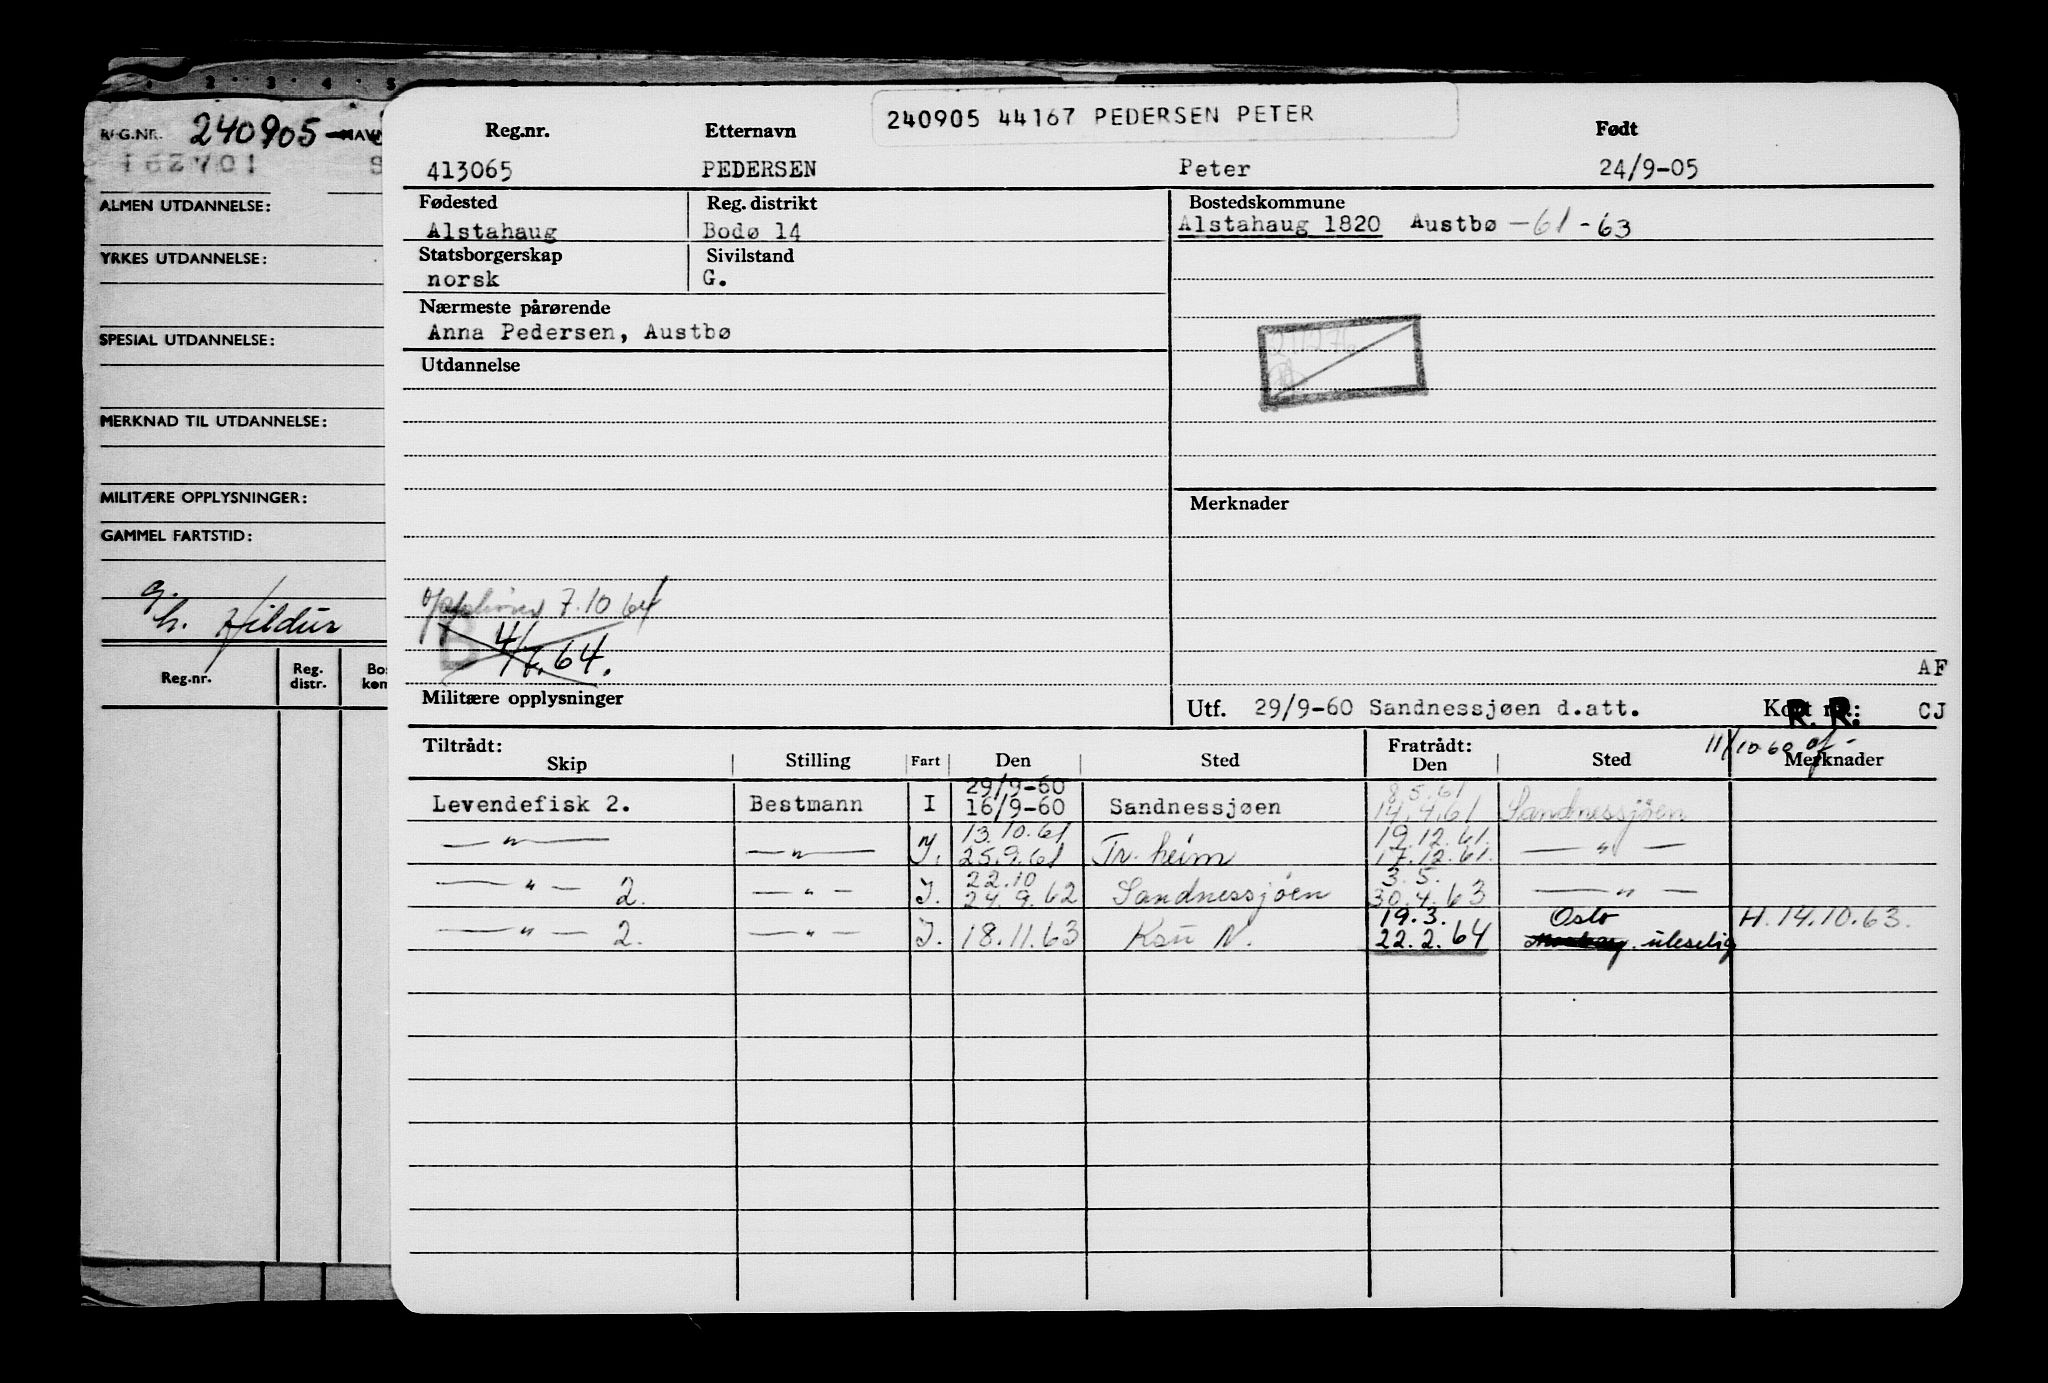 240905 44167 PEDERSEN PETER
REG.NR. 240905
162701
ALMEN UTDANNELSE:
YRKES UTDANNELSE:
SPESIAL UTDANNELSE:
MERKNAD TIL UTDANNELSE:
MILITÆRE OPPLYSNINGER:
GAMMEL FARTSTID:
g.
h. Hildur
Reg.nr. Reg. distr.
Reg.nr. Etternavn Født
413065 PEDERSEN Peter 24/9-05
Fødested Reg. distrikt Bostedskommune
Alstahaug Bodø 14 Alstahaug 1820 Austbø -61-63
Statsborgerskap Sivilstand
norsk G.
Nærmeste pårørende
Anna Pedersen, Austbø
Utdannelse
Merknader
7.10 64
B 4/7.64.
AF
Militære opplysninger Utf. 29/9-60 Sandnessjøen d.att. Kort nr.: R.R. CJ
11/10-60
Tiltrådt: Fratrådt:
Skip Stilling Fart Den Sted Den Sted Merknader
29/9-60 8.5.61
Levendefisk 2. Bestmann I 16/9-60 Sandnessjøen 14.4.61 Sandnessjøen
13.10.61 19.12.61.
— " — — " — I. 25.9.61 Tr.heim 17.12.61. — " —
22.10 3.5.
— " — 2. — " — I. 24.9.62 Sandnessjøen 30.4.63 — " —
19.3. Oslo H.14.10.63.
— " — 2. — " — I. 18.11.63 Ksu N. 22.2.64 uleselig